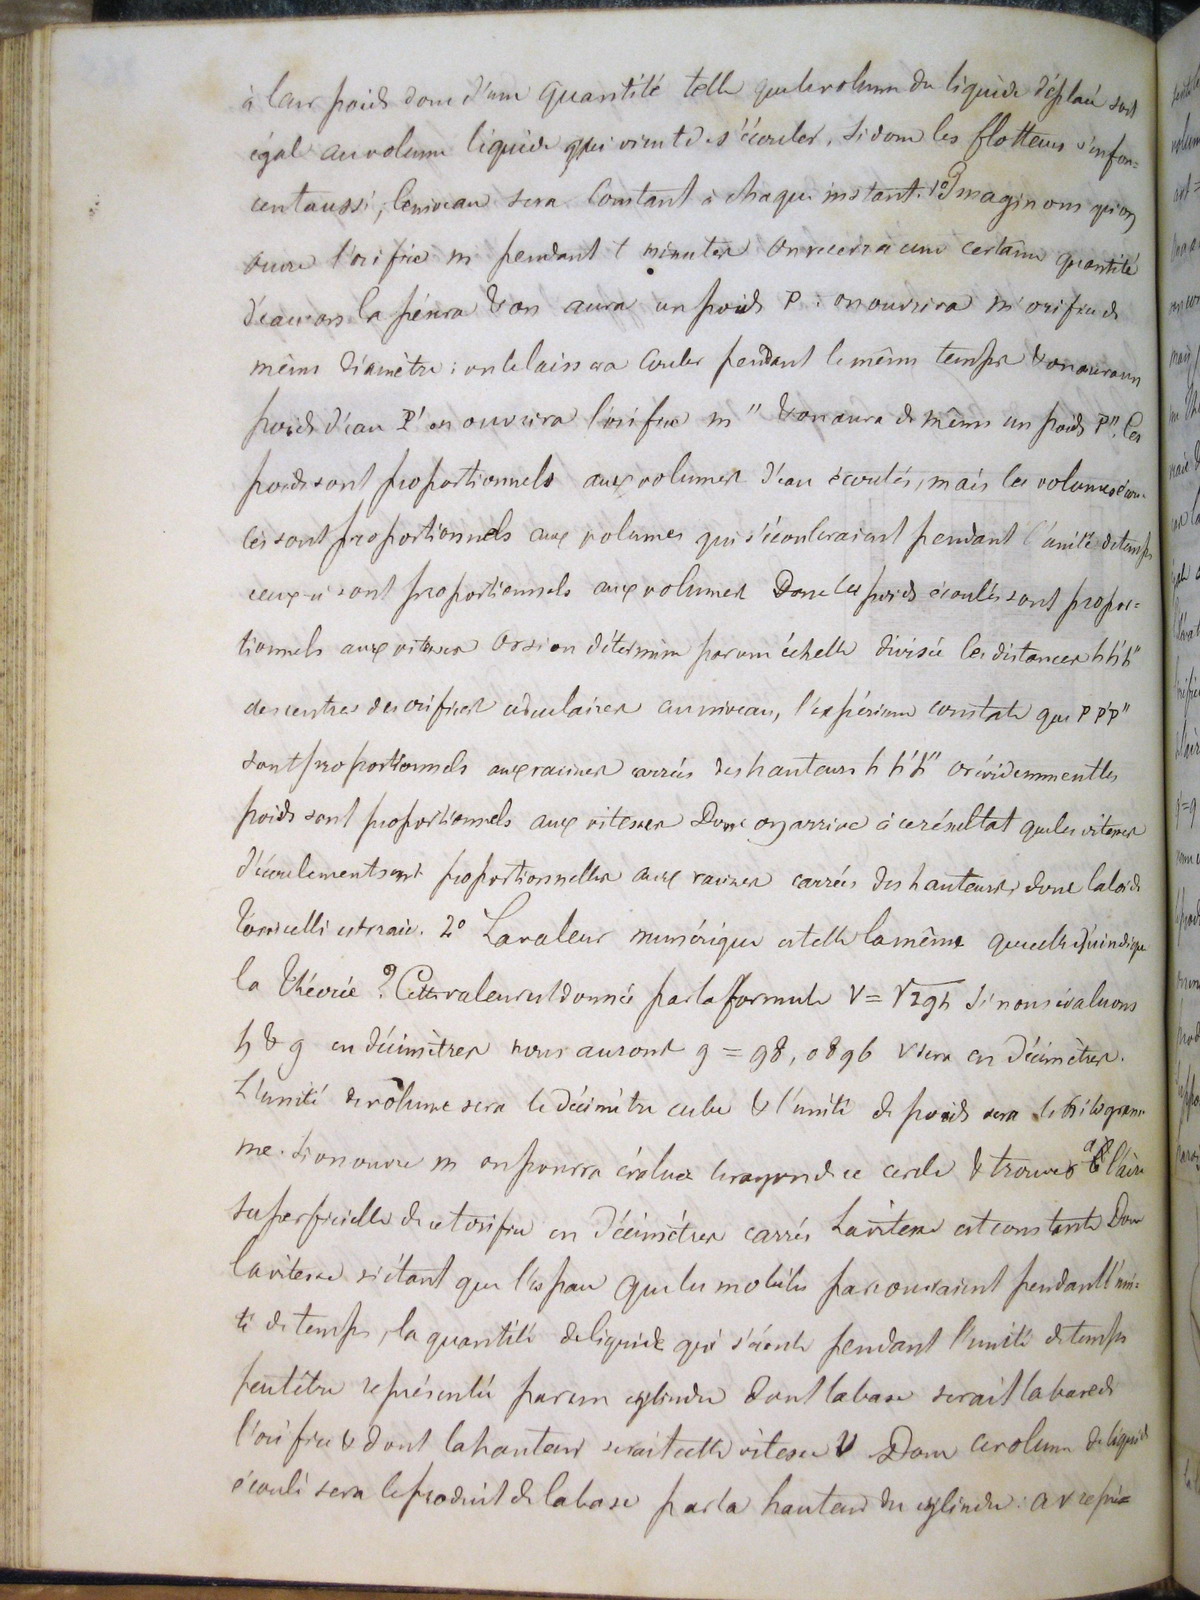 à leur poids donc d'une quantité telle que le volume du liquide déplacé soit
égal au volume liquide qui vient de s'écouler. Si donc les flotteurs s'enfon-
cent aussi, le niveau sera constant à chaque instant. 1º Imaginons qu'on
ouvre l'orifice m pendant t minutes on recevra une certaine quantité
d'eau on la pésera & on aura un poids P : on ouvrira m' orifice de
même diamètre : on le laissera couler pendant le même temps & on aura un
poids d'eau P' on ouvrira l'orifice m" & on aura de même un poids P". Ces
poids sont proportionnels aux volumes d'eau écoulés, mais les volumes écou-
lés sont proportionnels aux volumes qui s'écouleraient pendant l'unité de temps
ceux-ci sont proportionnels aux volumes Donc les poids écoulés sont propor-
tionnels aux vitesses Or si on détermine par une échelle divisée les distances h h' h"
des centres des orifices circulaires au niveau, l'expérience constate que P P' P"
sont proportionnels aux racines carrées des hauteurs h h' h" or évidemment les
poids sont proportionnels aux vitesses Donc on arrive à ce résultat que les vitesses
d'écoulement sont proportionnelles aux racines carrées des hauteurs donc la loi de
Torricelli est vraie. 2º La valeur numérique est elle la même que celle qu'indique
la théorie ? Cette valeur est donnée par la formule V = √2gh Si nous évaluons
h & g en décimètres nous aurons g = 98,0896 V sera en décimètres.
L'unité de volume sera le décimètre cube & l'unité de poids sera le kilogram-
me. Si on ouvre m on pourra évaluer le rayon de ce cercle & trouver l'aire
superficielle de cet orifice en décimètres carrés La vitesse est constante Donc
la vitesse n'étant que l'espace que les mobiles parcouraient pendant l'uni-
té de temps, la quantité de liquide qui s'écoule pendant l'unité de temps
peut être représentée par un cylindre dont la base serait la base de
l'orifice & dont la hauteur serait cette vitesse V Donc ce volume de liquide
écoulé sera le produit de la base par la hauteur du cylindre : a v repré=